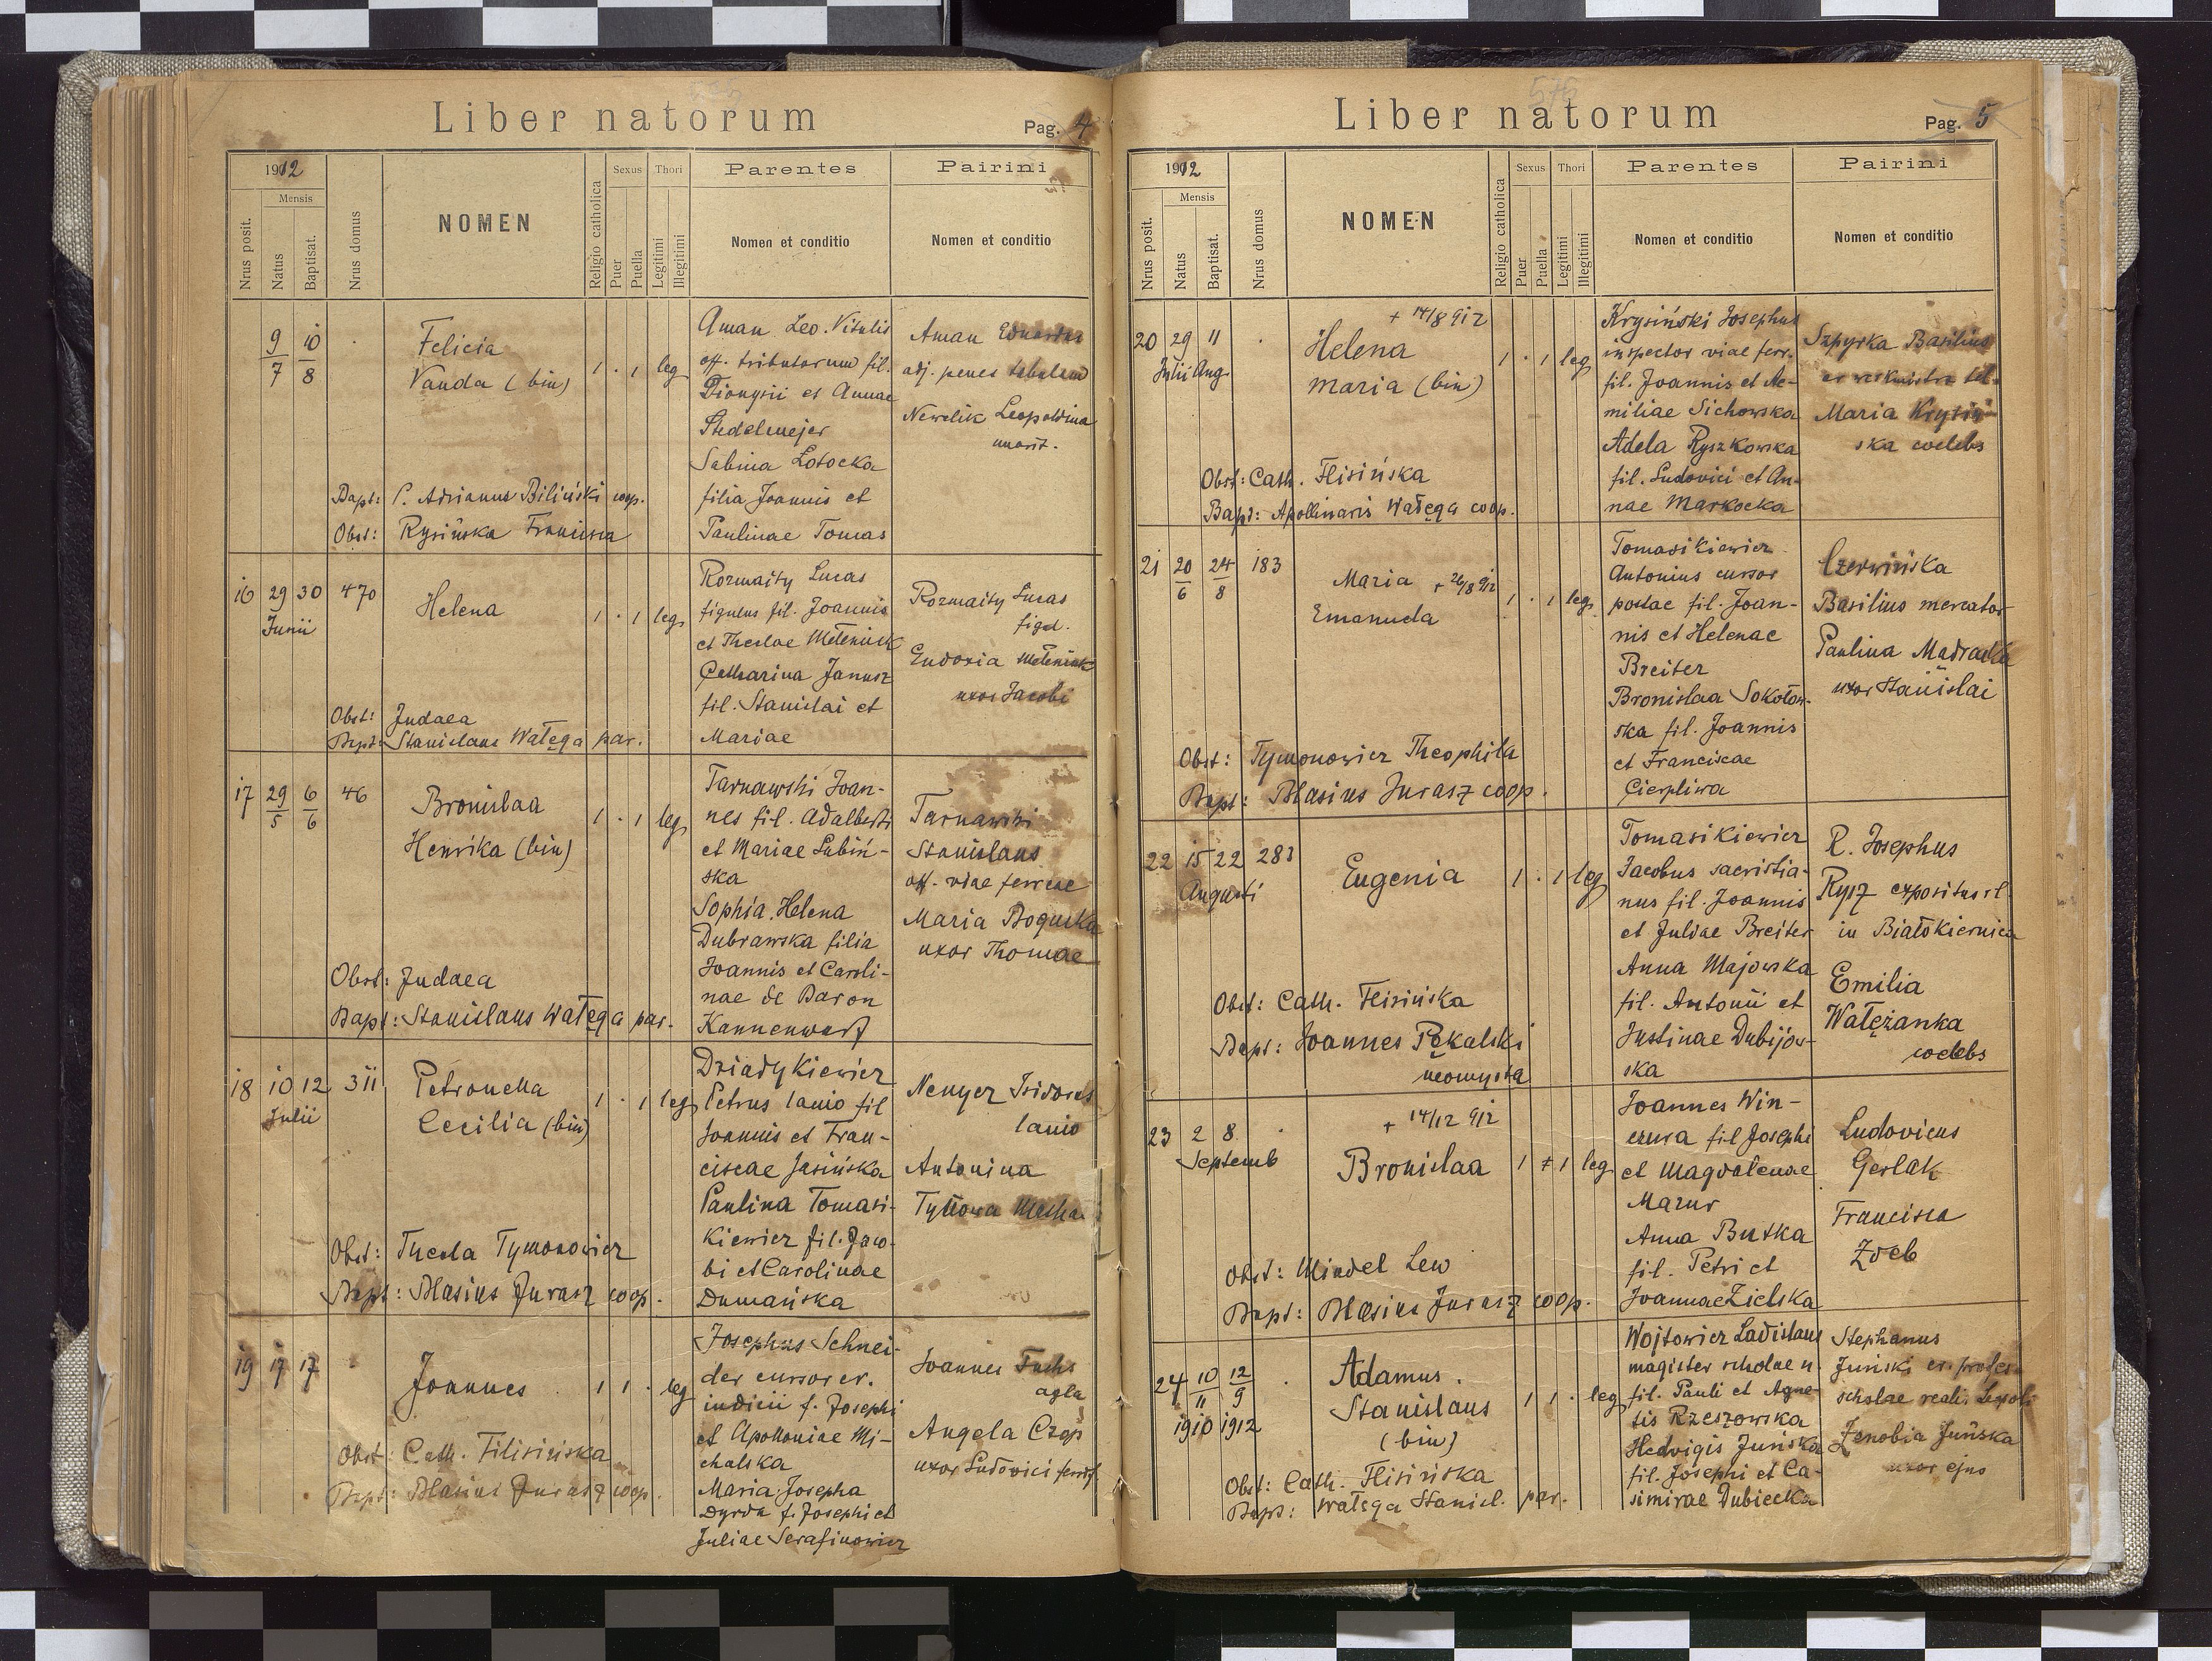 Liber natorum
Pag. 4
1912
Mensis
Nrus posit.
Natus
Baptisat.
Nrus domus
NOMEN
Religio catholica
Sexus
Puer
Puella
Thori
Legitimi
Illegitimi
Parentes
Nomen et conditio
Pairini
Nomen et conditio
9/7 10/8
Felicia
Vanda (bin)
1 . 1 leg
Aman Leo. Vitalis
off. tributorum fil.
Dionysii et Annae
Stedelmejer
Sabina Lotocka
filia Joannis et
Paulinae Tomas
Aman
adj. penes tabulam
Newelik Leopoldina
Bapt: P. Adrianus Biliński coop.
Obst: Rysińska Francisca
16 29 30 470
Junii
Helena
1 . 1 leg
Rozmaity Lucas
figulus fil. Joannis
et Theclae Meteniuk
Catharina Janusz
fil. Stanislai et
Mariae
Rozmaity Lucas
figul.
Eudoxia Meteniuk
uxor Jacobi
Obst: Judaea
Bapt: Stanislaus Wałęga par.
17 29/5 6/6 46
Bronislaa
Henrika (bin)
1 . 1 leg
Tarnawski Joan-
nes fil. Adalberti
et Mariae Lubiń-
ska
Sophia Helena
Dubrawska filia
Joannis et Caroli-
nae de Baron
Kannenwurf
Tarnawski
Stanislaus
off. viae ferreae
Maria Boguska
uxor Thomae
Obst: Judaea
Bapt: Stanislaus Wałęga par.
18 10 12 311
Julii
Petronella
Cecilia (bin)
1 . 1 leg
Dziadykiewicz
Petrus lanio fil
Joannis et Fran-
ciscae Jasińska
Paulina Tomasi-
kiewicz fil. Jaco-
bi et Carolinae
Dumańska
Nenyer Isidorus
lanio
Antonina
Obst: Thecla Tymonowicz
Bapt: Blasius Jurasz coop.
19 17 17
Joannes
1 1 . leg
Josephus Schnei-
der cursor cr.
iudicii f. Josephi
et Apolloniae Mi-
chalska
Maria Josepha
Dyrda f. Josephi et
Juliae Serafinowicz
Joannes Fuchs
agla
Angela Czop
uxor Ludovici
Obst: Cath. Filisińska
Bapt: Blasius Jurasz coop.
Liber natorum
576
Pag. 5
1912
Mensis
Nrus posit.
Natus
Baptisat.
Nrus domus
NOMEN
Religio catholica
Sexus
Puer
Puella
Thori
Legitimi
Illegitimi
Parentes
Nomen et conditio
Pairini
Nomen et conditio
20 29 11
Julii Aug.
+ 14/8 912
Helena
Maria (bin)
1 . 1 leg
Krysiński Josephus
inspector viae ferr.
fil. Joannis et Ae-
miliae Sichowska
Adela Ryszkowska
fil. Ludovici et An-
nae Markocka
Szpyrka Basilius
Maria Krysiń
ska coelebs
Obst: Cath. Flisińska
Bapt: Apollinaris Wałęga coop.
21 20/6 24/8 183
Maria + 26/8 912
Emanuela
1 . 1 leg
Tomasikiewicz
Antonius cursor
postae fil. Joan-
nis et Helenae
Breiter
Bronislaa Sokołow-
ska fil. Joannis
et Franciscae
Cierpliwa
Czerwińska
Basilius mercator
Paulina
uxor Stanislai
Obst: Tymonowicz Theophila
Bapt: Blasius Jurasz coop.
22 15 22 283
Augusti
Eugenia
1 . 1 leg
Tomasikiewicz
Jacobus sacristia-
nus fil. Joannis
et Juliae Breiter
Anna Majowska
fil. Antonii et
Justinae Dubijow-
ska
R. Josephus
Rysz expositus r.l.
in Białokiernica
Emilia
Wałężanka
coelebs
Obst: Cath. Flisińska
Bapt: Joannes Pękalski
neomysta
23 2 8
Septemb
+ 14/12 912
Bronislaa
1 + 1 leg
Joannes Win-
czura fil Josephi
et Magdalenae
Mazur
Anna Butka
fil. Petri et
Joannae Zielska
Ludovicus
Gerlak
Francisca
Zreb
Obst: Mindel Lew
Bapt: Blasius Jurasz coop.
24 10/11 12/9
1910 1912
Adamus
Stanislaus
(bin)
1 1 . leg
Wojtowicz Ladislaus
magister scholae n.
fil. Pauli et Agne-
tis Rzeszowska
Hedvigis Juńska
fil. Josephi et Ca-
simirae Dubiecka
Stephanus
Juński cr. profes.
scholae realis Leopoli
Zenobia Juńska
uxor ejus
Obst: Cath. Flisińska
Bapt: Wałęga Stanisl. par.